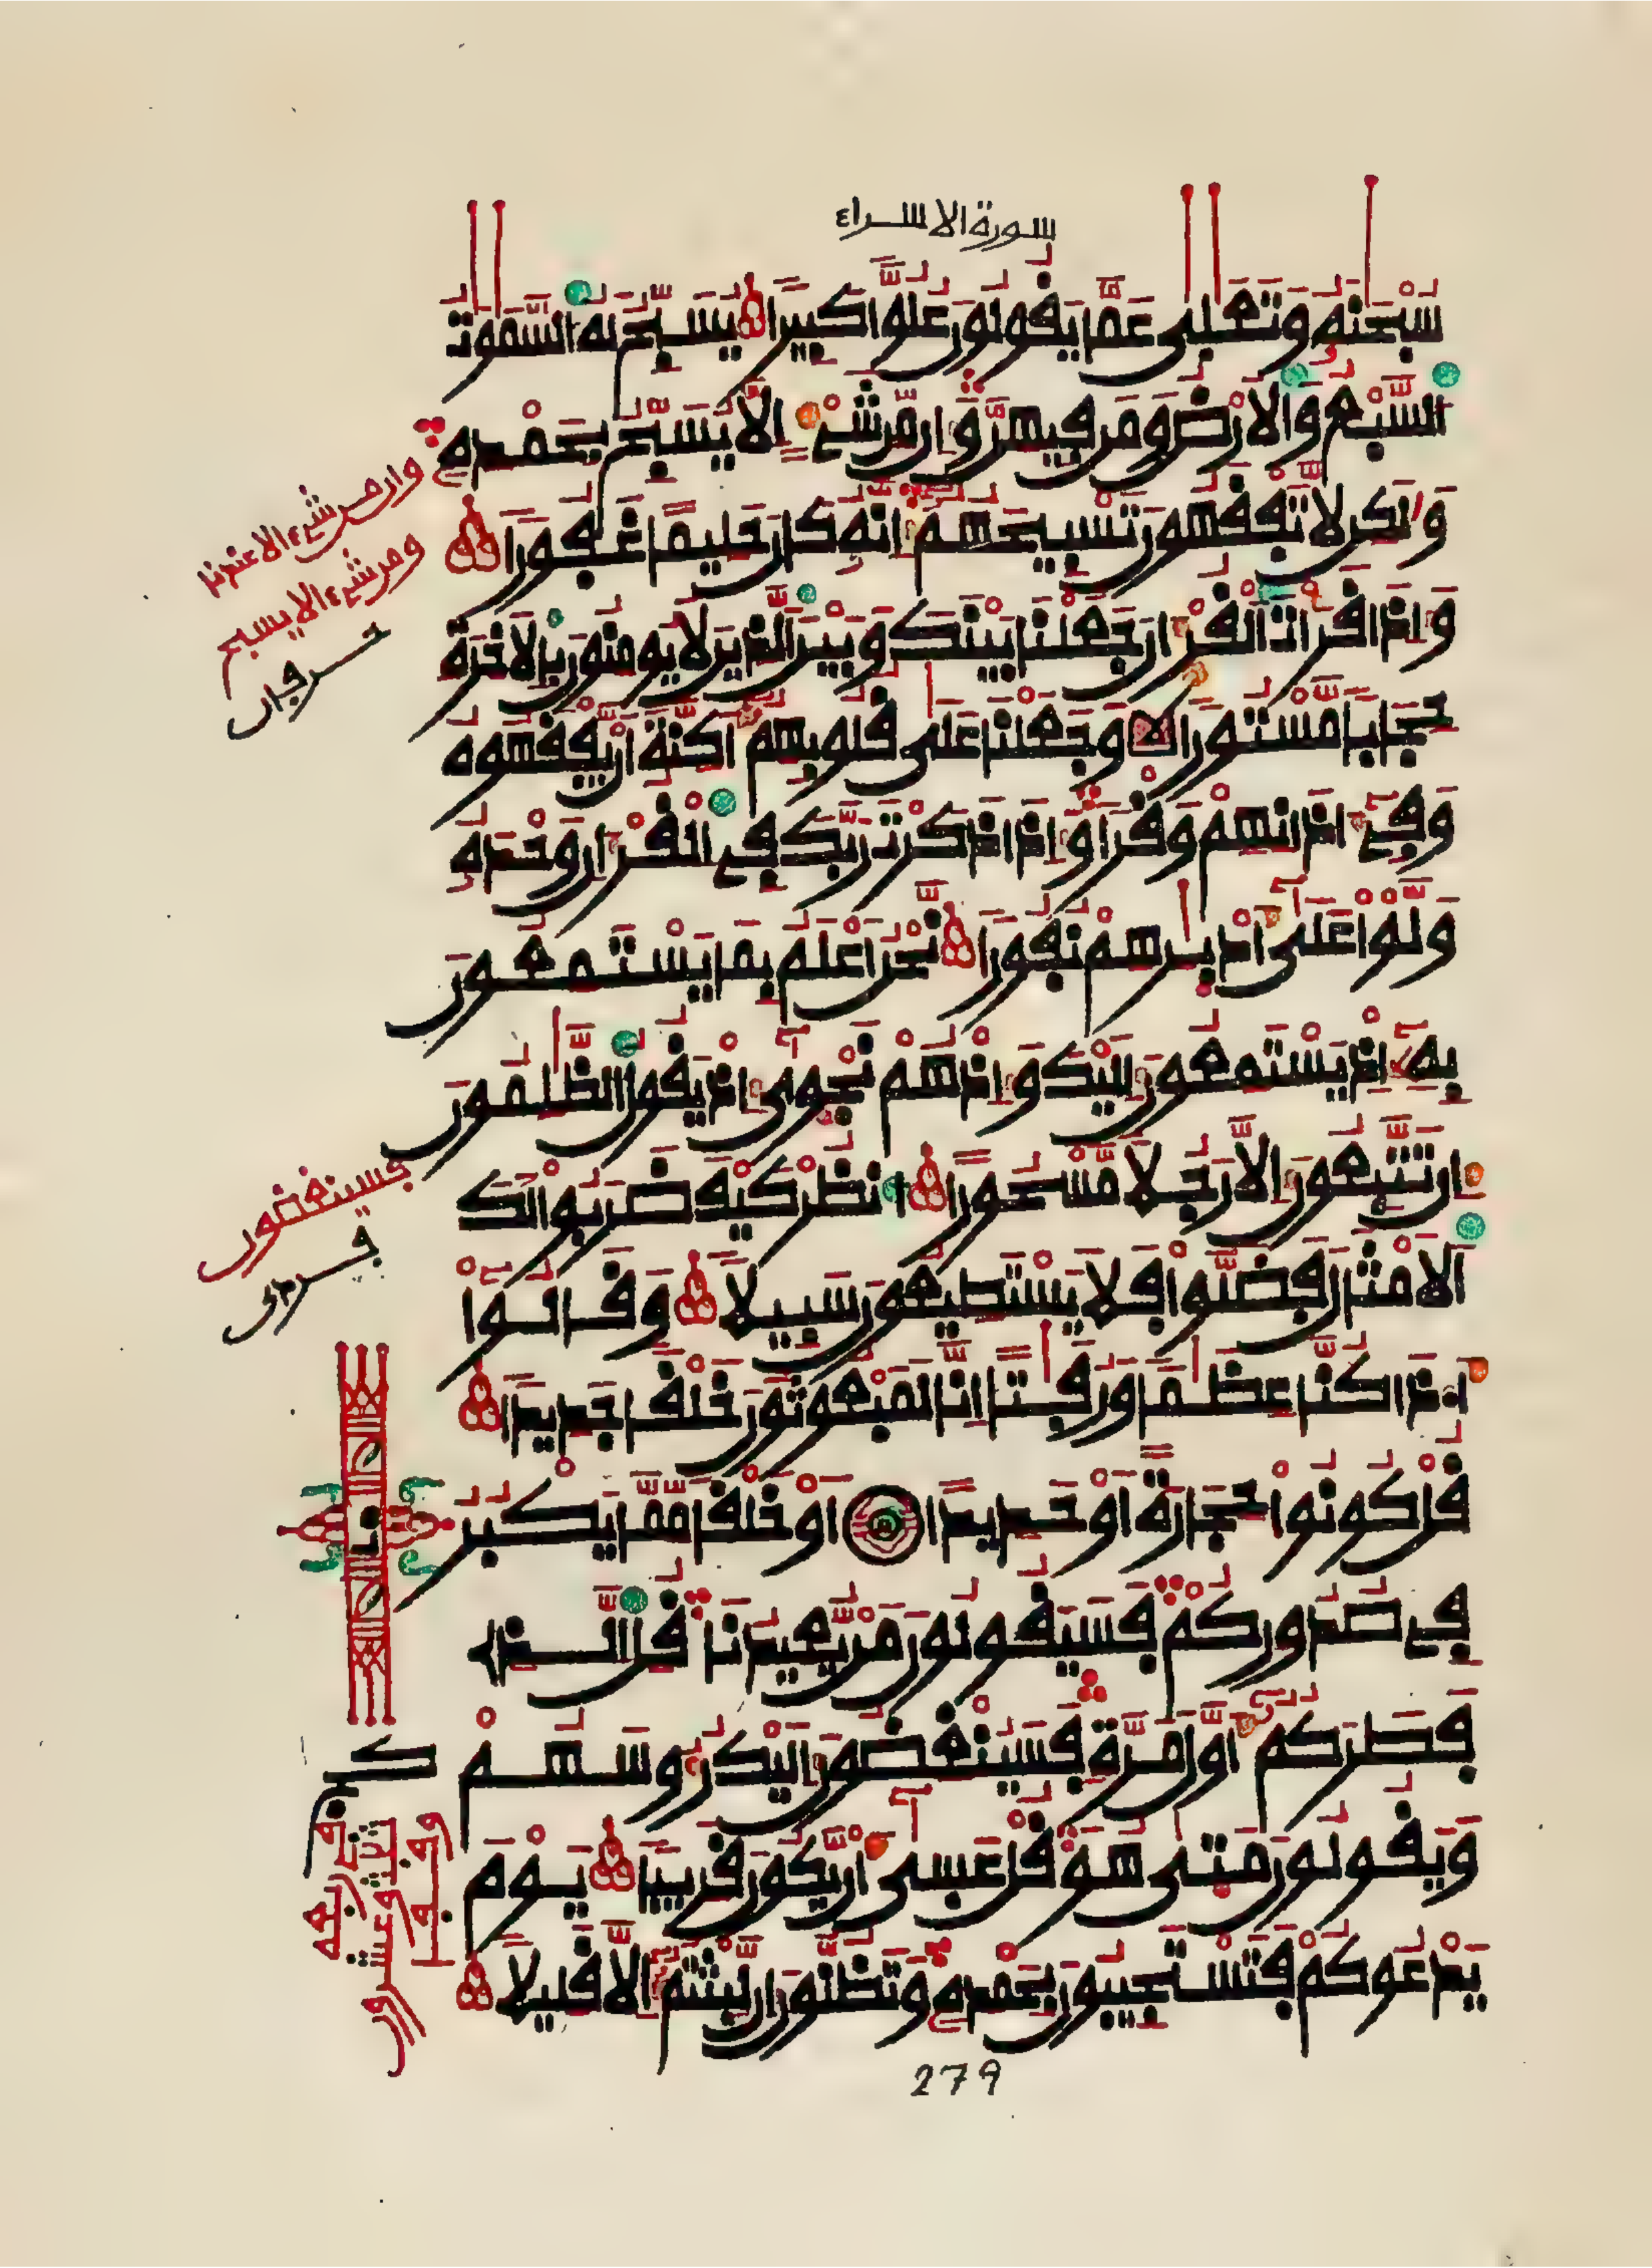 سورة الاسراء
سُبْحَٰنَهُۥ وَتَعَٰلَىٰ عَمَّا يَقُولُونَ عُلُوّٗا كَبِيرٗا يُسَبِّحُ لَهُ السَّمَٰوَٰتُ
السَّبْعُ وَالَارْضُ وَمَن فِيهِنَّ وَإِن مِّن شَےْءٍ اِلَّا يُسَبِّحُ بِحَمْدِهِۦ
وَلَٰكِن لَّا تَفْقَهُونَ تَسْبِيحَهُمُۥٓ إِنَّهُۥ كَانَ حَلِيمًا غَفُورٗا
وَإِذَا قَرَأْتَ الْقُرْءَانَ جَعَلْنَا بَيْنَكَ وَبَيْنَ الذِينَ لَا يُومِنُونَ بِالَاخِرَةِ
حِجَابٗا مَّسْتُورٗا وَجَعَلْنَا عَلَىٰ قُلُوبِهِمُۥٓ أَكِنَّةً أَنْ يَّفْقَهُوهُ
وَفِےٓ ءَاذَانِهِمْ وَقْرٗا وَإِذَا ذَكَرْتَ رَبَّكَ فِے الْقُرْءَانِ وَحْدَهُۥ
وَلَّوْا عَلَىٰٓ أَدْبَٰرِهِمْ نُفُورٗا نَّحْنُ أَعْلَمُ بِمَا يَسْتَمِعُونَ
بِهِۦٓ إِذْ يَسْتَمِعُونَ إِلَيْكَ وَإِذْ هُمْ نَجْوَىٰٓ إِذْ يَقُولُ الظَّٰلِمُونَ
إِن تَتَّبِعُونَ إِلَّا رَجُلٗا مَّسْحُورًا اُنظُرْ كَيْفَ ضَرَبُوا لَكَ
الَامْثَالَ فَضَلُّوا فَلَا يَسْتَطِيعُونَ سَبِيلٗا وَقَالُوٓا
أَ۟ذَا كُنَّا عِظَٰمٗا وَرُفَٰتًا اِنَّا لَمَبْعُوثُونَ خَلْقٗا جَدِيدٗا
قُلْ كُونُوا حِجَارَةً أَوْ حَدِيدًا أَوْ خَلْقٗا مِّمَّا يَكْبُرُ
فِے صُدُورِكُمْ فَسَيَقُولُونَ مَنْ يُّعِيدُنَا قُلِ الذِے
فَطَرَكُمُۥٓ أَوَّلَ مَرَّةٖ فَسَيُنْغِضُونَ إِلَيْكَ رُءُوسَهُمْ
وَيَقُولُونَ مَتَىٰ هُوَ قُلْ عَسَىٰٓ أَنْ يَّكُونَ قَرِيبٗا يَوْمَ
يَدْعُوكُمْ فَتَسْتَجِيبُونَ بِحَمْدِهِۦ وَتَظُنُّونَ إِن لَّبِثْتُمُۥٓ إِلَّا قَلِيلٗا
279
وان من شےء الا عندنا
ومن شےء الا يسبح
حرفان
فسينغضون
فردى